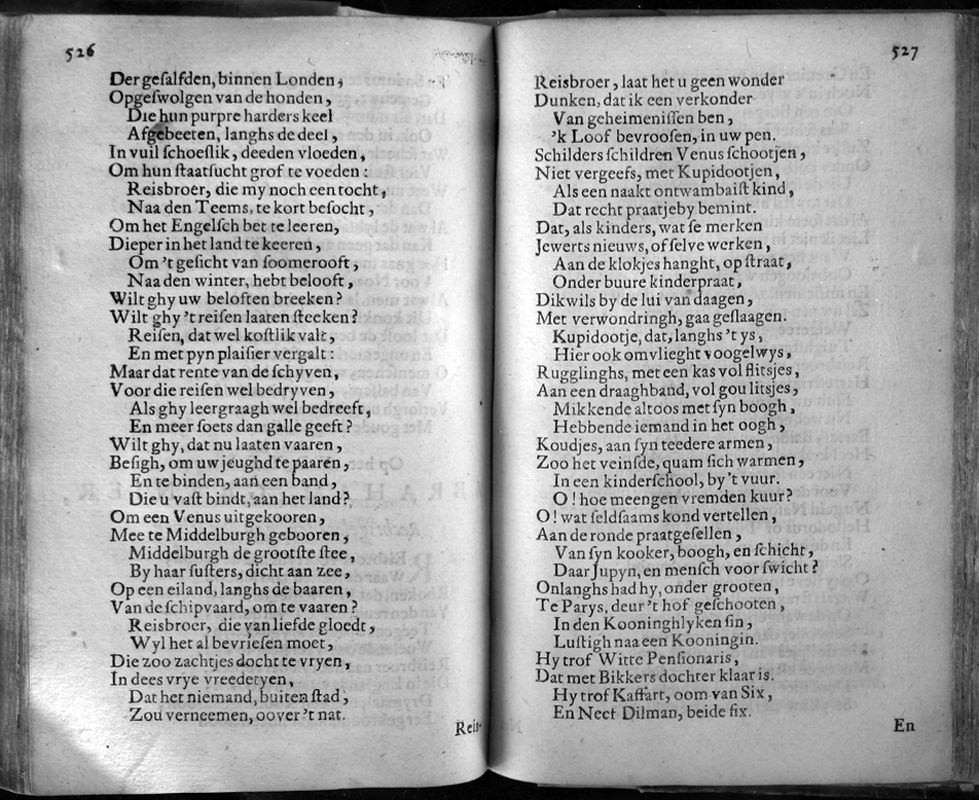 526
Der gesalfden, binnen Londen,
Opgeswolgen van de honden,
Die hun purpre harders keel
Afgebeeten, langhs de deel,
In vuil schoeslik, deeden vloeden,
Om hun staatsucht grof te voeden:
Reisbroer, die my noch een tocht,
Naa den Teems, te kort besocht,
Om het Engelsch bet te leeren,
Dieper in het land te keeren,
Om 't gesicht van soomerooft,
Naa den winter, hebt belooft,
Wilt ghy uw beloften breeken?
Wilt ghy 't reisen laaten steeken?
Reisen, dat wel kostlik valt,
En met pyn plaisier vergalt:
Maar dat rente van de schyven,
Voor die reisen wel bedryven,
Als ghy leergraagh wel bedreeft,
En meer soets dan galle geeft?
Wilt ghy, dat nu laaten vaaren,
Besigh, om uw jeughd te paaren,
En te binden, aan een band,
Die u vast bindt, aan het land?
Om een Venus uitgekooren,
Mee te Middelburgh gebooren,
Middelburgh de grootste stee,
By haar susters, dicht aan zee,
Op een eiland, langhs de baaren,
Van de schipvaard, om te vaaren?
Reisbroer, die van liefde gloedt,
Wyl het al bevriesen moet,
Die zoo zachtjes docht te vryen,
In dees vrye vreedetyen,
Dat het niemand, buiten stad,
Zou verneemen, oover 't nat.
Reis-
527
Reisbroer, laat het u geen wonder
Dunken, dat ik een verkonder
Van geheimenissen ben,
'k Loof bevroosen, in uw pen.
Schilders schildren Venus schootjen,
Niet vergeefs, met Kupidootjen,
Als een naakt ontwambaist kind,
Dat recht praatjeby bemint.
Dat, als kinders, wat se merken
Jewerts nieuws, of selve werken,
Aan de klokjes hanght, op straat,
Onder buure kinderpraat,
Dikwils by de lui van daagen,
Met verwondringh, gaa geslaagen.
Kupidootje, dat, langhs 't ys,
Hier ook omvlieght voogelwys,
Rugglinghs, met een kas vol flitsjes,
Aan een draaghband, vol gou litsjes,
Mikkende altoos met syn boogh,
Hebbende iemand in het oogh,
Koudjes, aan syn teedere armen,
Zoo het veinsde, quam sich warmen,
In een kinderschool, by 't vuur.
O! hoe meengen vremden kuur?
O! wat seldsaams kond vertellen,
Aan de ronde praatgesellen,
Van syn kooker, boogh, en schicht,
Daar Jupyn, en mensch voor swicht?
Onlanghs had hy, onder grooten,
Te Parys, deur 't hof geschooten,
In den Kooninghlyken sin,
Lustigh naa een Kooningin.
Hy trof Witte Pensionaris,
Dat met Bikkers dochter klaar is.
Hy trof Kaffart, oom van Six,
En Neef Dilman, beide fix.
En